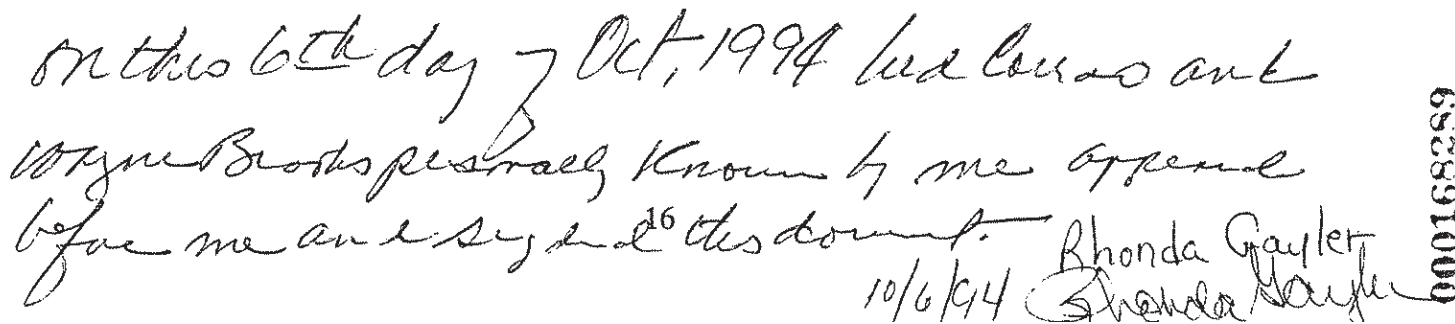 on this 6th day of Oct, 1994 and
Wayne Brooks personally known by me appeared
before me and signed this document.
16
Rhonda Gayler
10/6/94 Rhonda Gayler
0000168289